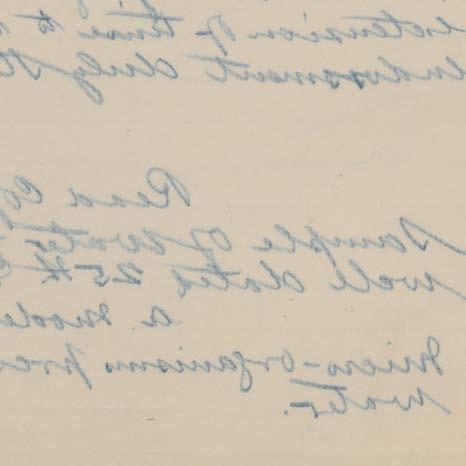 extension of time to
endorsment duly
Read Co
Sample of Water
well dated 25th
a mode
Micro-organisms pre
water.